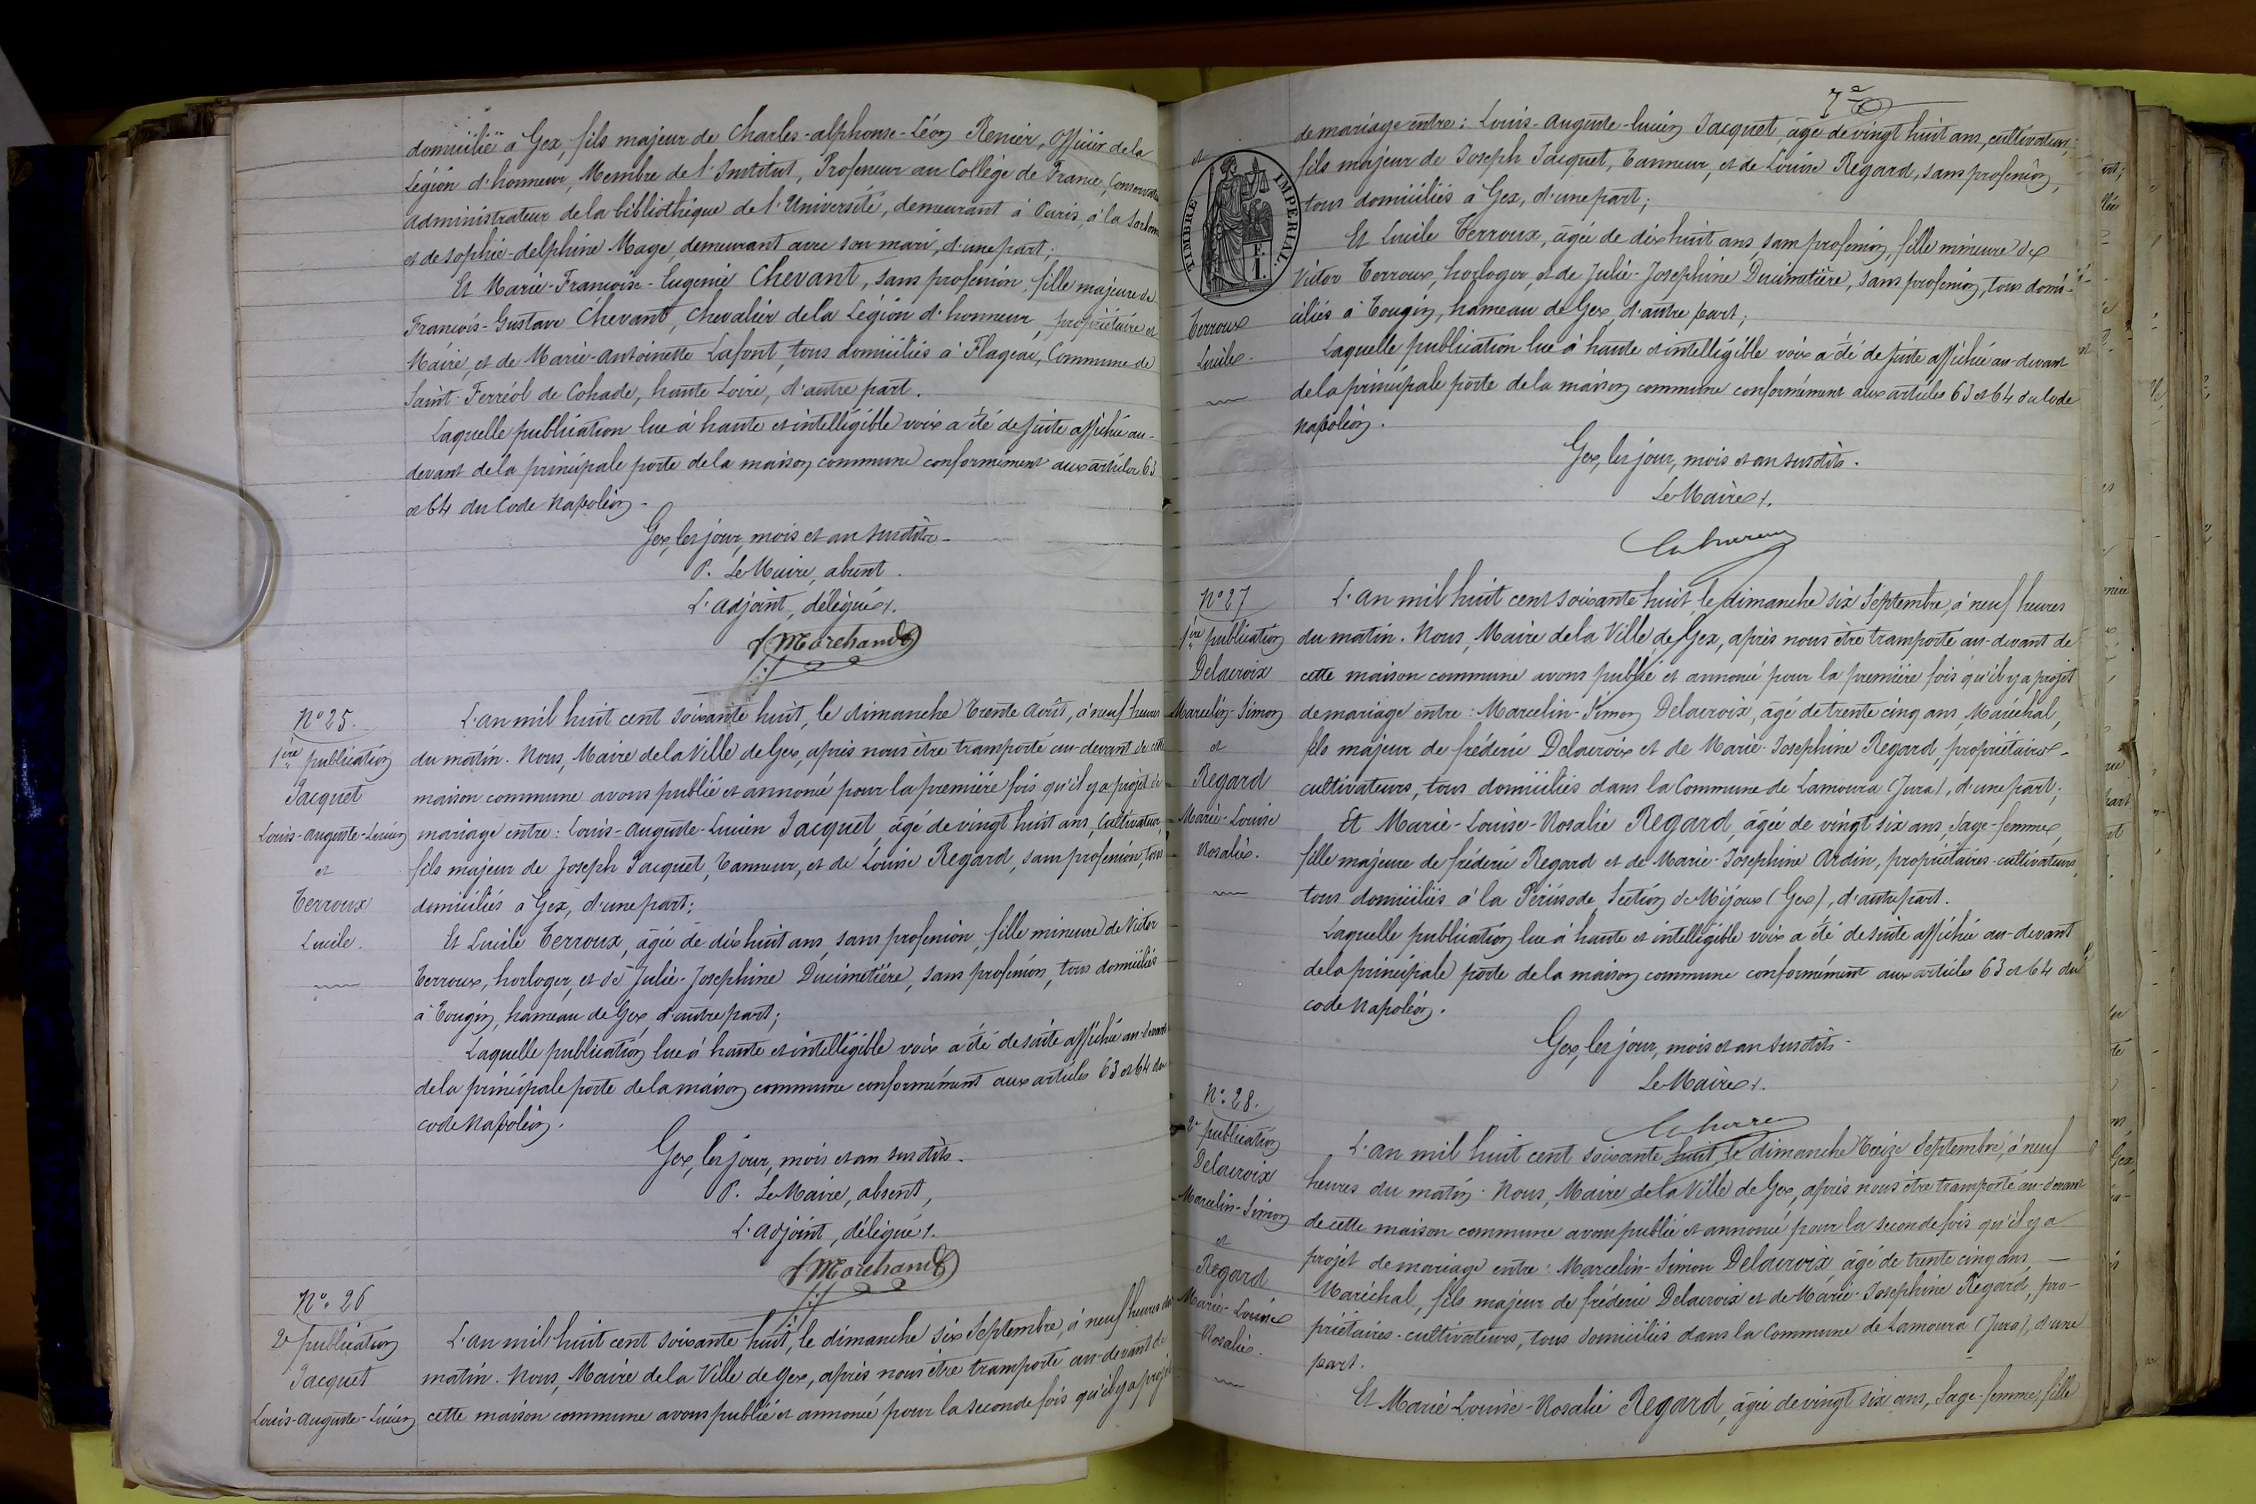 domicilié à Gex, fils majeur de Charles-alphonse-Léon Renier, Officier de la
Légion d'honneur, Membre de l'Institut, Professeur au Collège de France, Conservateur
administrateur de la bibliothèque de l'Université, demeurant à Paris, à la Sorbonne
et de Sophie-delphine Mage, demeurant avec son mari, d'une part;
Et Marie-Françoise-Eugenie Chevant, sans profession, fille majeure de
François-Gustave Chevant, Chevalier de la Légion d'honneur, propriétaire et
Maire, et de Marie-Antoinette Lafont, tous domiciliés à Flageac, Commune de
Saint-Ferréol de Cohade, haute Loire, d'autre part.
Laquelle publication lue à haute et intelligible voix a été de suite affichée au-
devant de la principale porte de la maison commune conformément aux articles 63
et 64 du Code Napoléon.
Gex, les jour, mois et an susdits.
P. Le Maire, absent.
L'adjoint, délégué.
Marchand
N° 25.
1ère publication
Jacquet
Louis-Auguste-Lucien
et
Terroux
Lucile.
L'an mil huit cent soixante huit, le dimanche Trente Août, à neuf heures
du matin. Nous, Maire de la Ville de Gex, après nous être transporté au-devant de cette
maison commune avons publié et annoncé pour la première fois qu'il y a projet de
mariage entre: Louis-Auguste-Lucien Jacquet, âgé de vingt huit ans, Cultivateur,
fils majeur de Joseph Jacquet, Tanneur, et de Louise Regard, sans profession, tous
domiciliés à Gex, d'une part;
Et Lucile Terroux, âgée de dix huit ans, sans profession, fille mineure de Victor
Terroux, horloger, et de Julie-Josephine Ducimetière, sans profession, tous domiciliés
à Tougin, hameau de Gex, d'autre part;
Laquelle publication lue à haute et intelligible voix a été de suite affichée au-devant
de la principale porte de la maison commune conformément aux articles 63 et 64 du
code Napoléon.
Gex, les jour, mois et an susdits.
P. Le Maire, absent,
L'adjoint, délégué.
Marchand
N° 26
2e publication
Jacquet
Louis-Auguste-Lucien
L'an mil huit cent soixante huit, le dimanche six Septembre, à neuf heures du
matin. Nous, Maire de la Ville de Gex, après nous être transporté au-devant de
cette maison commune avons publié et annoncé pour la seconde fois qu'il y a projet
7e
et
TIMBRE IMPÉRIAL
Terroux
Lucile.
de mariage entre: Louis-Auguste-Lucien Jacquet, âgé de vingt huit ans, cultivateur,
fils majeur de Joseph Jacquet, Tanneur, et de Louise Regard, sans profession,
tous domiciliés à Gex, d'une part;
Et Lucile Terroux, âgée de dix huit ans, sans profession, fille mineure de
Victor Terroux, horloger, et de Julie-Josephine Ducimetière, sans profession, tous domi-
ciliés à Tougin, hameau de Gex, d'autre part;
Laquelle publication lue à haute et intelligible voix a été de suite affichée au-devant
de la principale porte de la maison commune conformément aux articles 63 et 64 du Code
Napoléon.
Gex, les jour, mois et an susdits.
Le Maire.
N° 27
1ère publication
Delacroix
Marcelin-Simon
et
Regard
Marie-Louise
Rosalie.
L'an mil huit cent soixante huit, le dimanche six Septembre, à neuf heures
du matin. Nous, Maire de la Ville de Gex, après nous être transporté au-devant de
cette maison commune avons publié et annoncé pour la première fois qu'il y a projet
de mariage entre: Marcelin-Simon Delacroix, âgé de trente cinq ans, Maréchal,
fils majeur de fréderic Delacroix et de Marie-Josephine Regard, propriétaires-
cultivateurs, tous domiciliés dans la Commune de Lamoura (Jura), d'une part;
Et Marie-Louise-Rosalie Regard, âgée de vingt six ans, Sage-femme,
fille majeure de fréderic Regard et de Marie-Josephine Ardin, propriétaires-cultivateurs,
tous domiciliés à la Section de Mijoux (Gex), d'autre part.
Laquelle publication lue à haute et intelligible voix a été de suite affichée au-devant
de la principale porte de la maison commune conformément aux articles 63 et 64 du
code Napoléon.
Gex, les jour, mois et an susdits.
Le Maire.
N° 28.
2e publication
Delacroix
Marcelin-Simon
et
Regard
Marie-Louise
Rosalie.
L'an mil huit cent soixante huit, le dimanche Treize Septembre, à neuf
heures du matin. Nous, Maire de la Ville de Gex, après nous être transporté au-devant
de cette maison commune avons publié et annoncé pour la seconde fois qu'il y a
projet de mariage entre: Marcelin-Simon Delacroix, âgé de trente cinq ans,
Maréchal, fils majeur de fréderic Delacroix et de Marie-Josephine Regard, pro-
priétaires-cultivateurs, tous domiciliés dans la Commune de Lamoura (Jura), d'une
part.
Et Marie-Louise-Rosalie Regard, âgée de vingt six ans, Sage-femme, fille